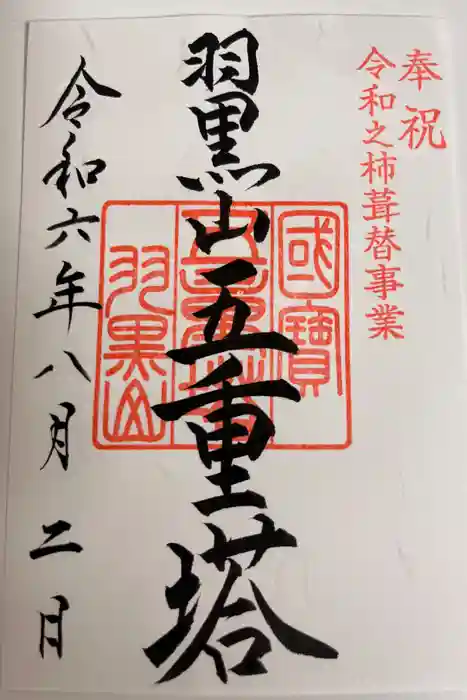 奉祝
令和之柿葺替事業
羽黒山五重塔
國寶
五重塔
羽黒山
令和六年八月二日